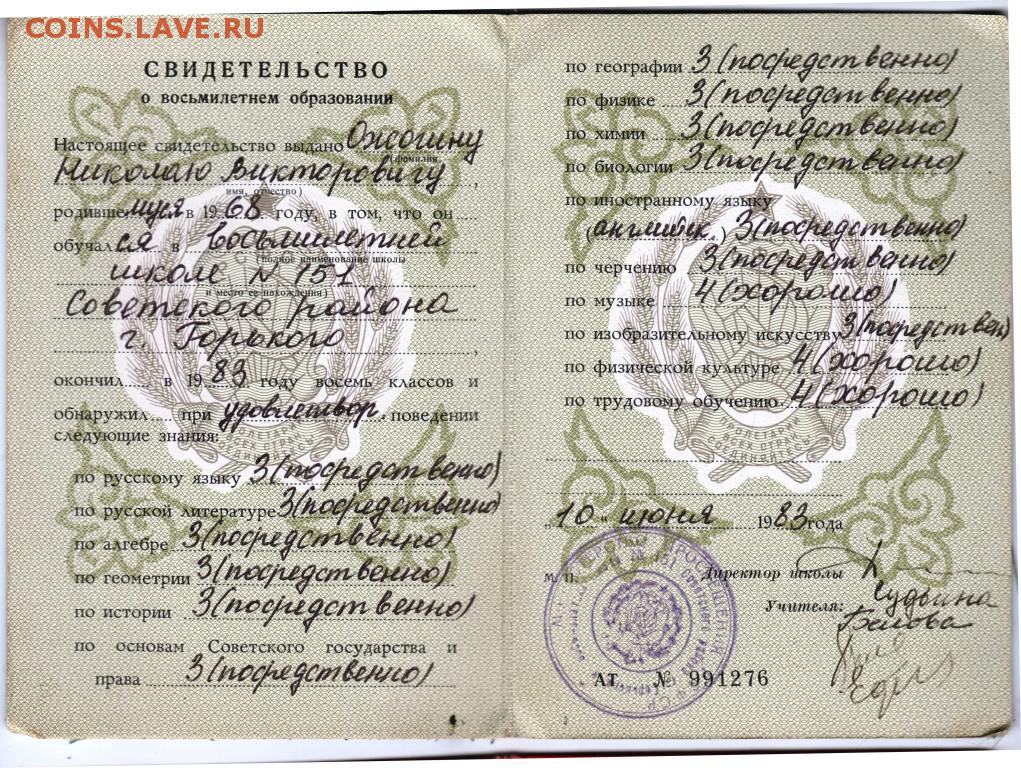 COINS.LAVE.RU
СВИДЕТЕЛЬСТВО
о восьмилетнем образовании
Настоящее свидетельство выдано Ожогину
(фамилия,
Николаю Викторовичу,
имя, отчество)
родившемуся в 1968 году, в том, что он
обучался в восьмилетней
(полное наименование школы
школе N 151
и место ее нахождения)
Советского района
г. Горького,
окончил в 1983 году восемь классов и
обнаружил при удовлетвор. поведении
следующие знания:
по русскому языку 3 (посредственно)
по русской литературе 3 (посредственно)
по алгебре 3 (посредственно)
по геометрии 3 (посредственно)
по истории 3 (посредственно)
по основам Советского государства и
права 3 (посредственно)
по географии 3 (посредственно)
по физике 3 (посредственно)
по химии 3 (посредственно)
по биологии 3 (посредственно)
по иностранному языку
(английск.) 3 (посредственно)
по черчению 3 (посредственно)
по музыке 4 (хорошо)
по изобразительному искусству 3 (посредствен)
по физической культуре 4 (хорошо)
по трудовому обучению 4 (хорошо)
ПРОЛЕТАРИИ
ВСЕХ СТРАН
СОЕДИНЯЙТЕСЬ
„10" июня 1983 года
М. П.
Директор школы
Учителя:
Белова
АТ № 991276